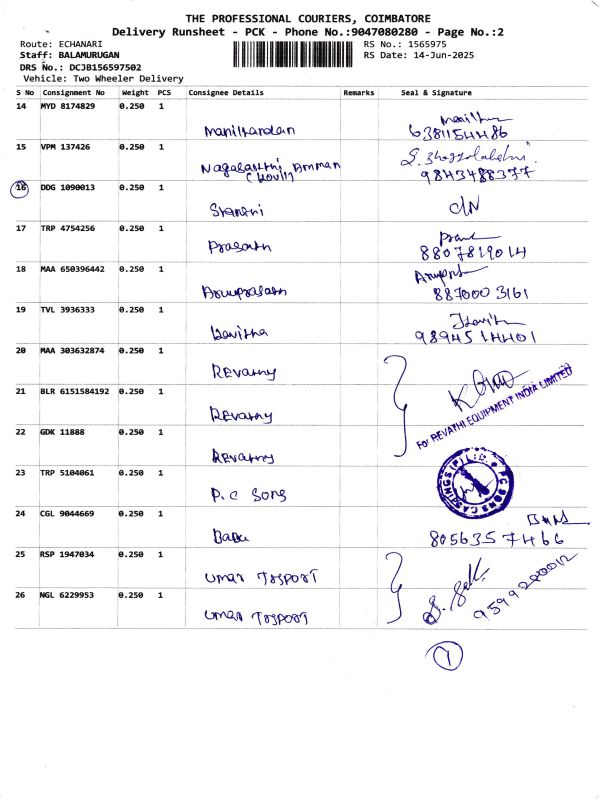 THE PROFESSIONAL COURIERS, COIMBATORE
Delivery Runsheet - PCK - Phone No.:9047080280 - Page No.:2
Route: ECHANARI RS No.: 1565975
Staff: BALAMURUGAN RS Date: 14-Jun-2025
DRS No.: DCJB156597502
Vehicle: Two Wheeler Delivery
S No Consignment No Weight PCS Consignee Details Remarks Seal & Signature
14 MYD 8174829 0.250 1
Manikandan 6381154486
15 VPM 137426 0.250 1
Amman 9843488377
16 DDG 1090013 0.250 1
17 TRP 4754256 0.250 1
Prasath 8807819014
18 MAA 650396442 0.250 1
Arunprasath 8870003161
19 TVL 3936333 0.250 1
Kavitha 9894514401
20 MAA 303632874 0.250 1
REvathy
21 BLR 6151584192 0.250 1
REvathy For REVATHI EQUIPMENT INDIA LIMITED
22 GDK 11888 0.250 1
REvathy
23 TRP 5104061 0.250 1
P.C Sons P C SONS CASTINGS (P) LTD.
24 CGL 9044669 0.250 1
Babu 8056357466
25 RSP 1947034 0.250 1
Umar
26 NGL 6229953 0.250 1
Umar
1